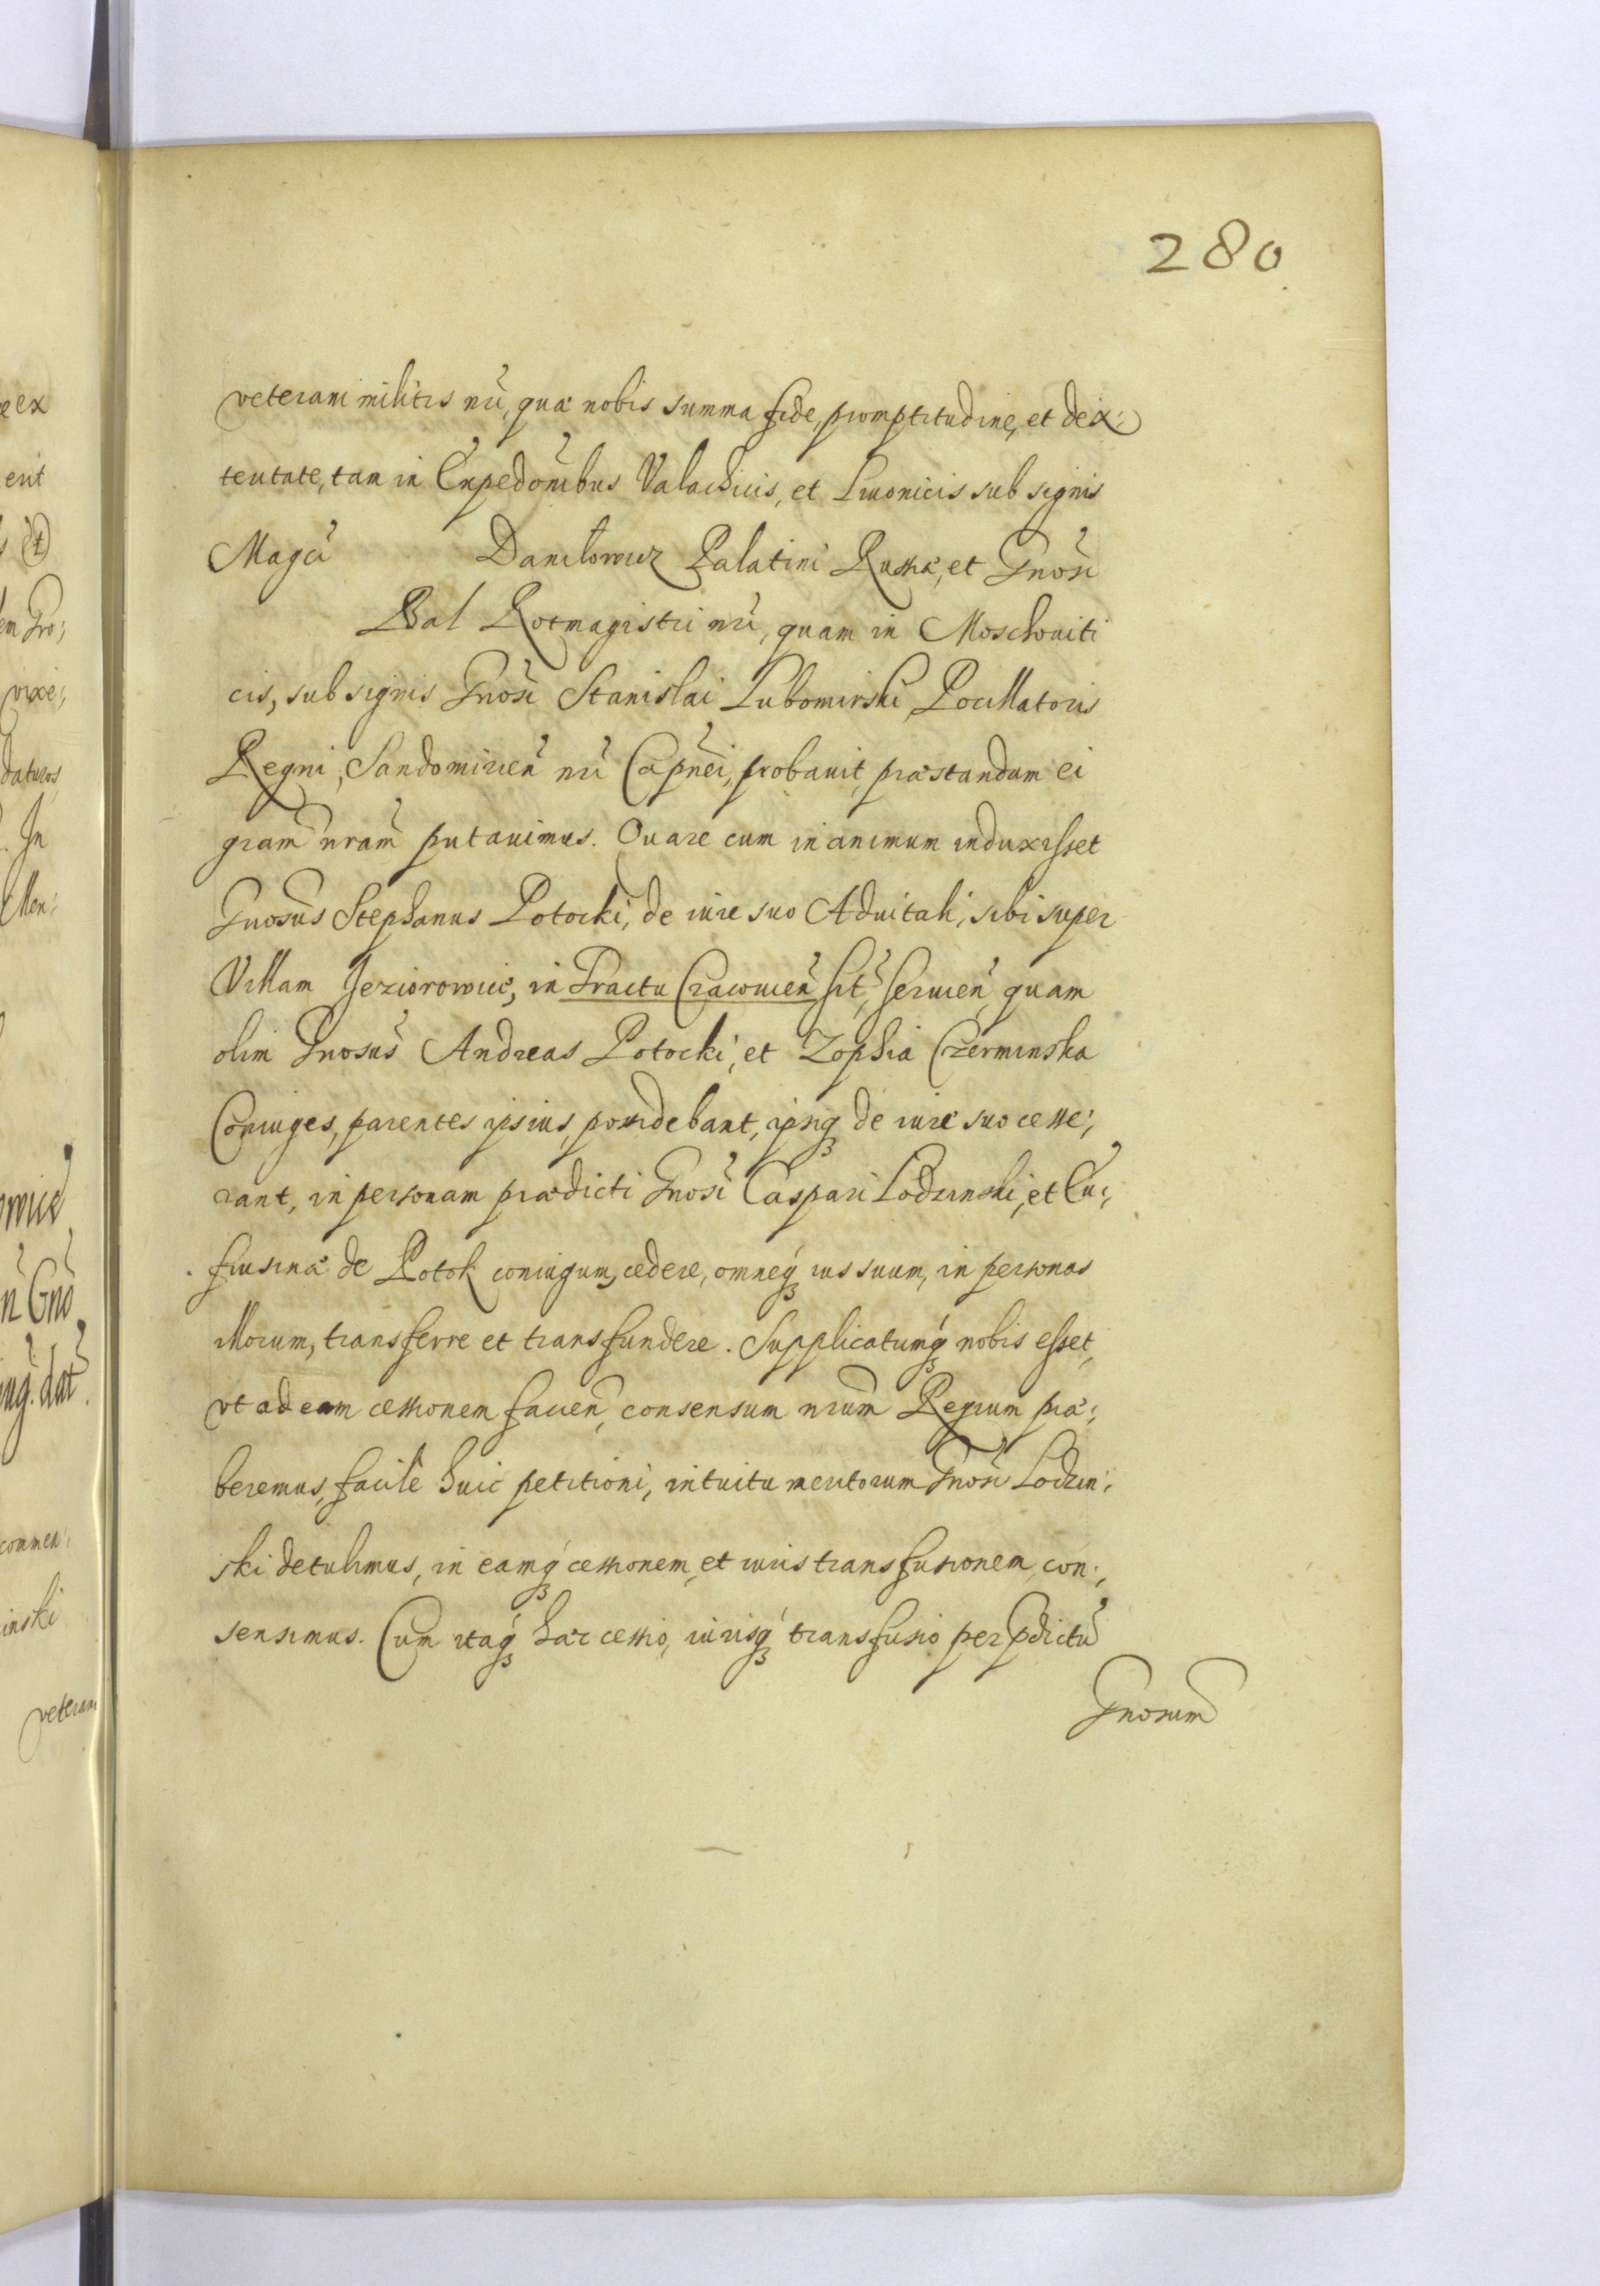 280
veterani militis nri, quæ nobis summa fide, promptitudine, et dex:
teritate, tam in Expedonibus Valachicis, et Liuonicis sub signis
Magci Daniłowicz Palatini Russiæ, et Gnosi
Bal Rotmagistri nri, quam in Moschouiti
cis, sub signis Gnosi Stanislai Lubomirski Pocillatoris
Regni, Sandomirien nri Capnei, probauit, præstandam ei
gram nram putauimus. Quare cum in animum induxisset
Gnosus Stephanus Potocki, de iure suo Aduitali, sibi super
Villam Jeziorowice, in Tractu Cracouien sit, seruien, quam
olim Gnosus Andreas Potocki, et Zophia Czerminska
Coniuges, parentes ipsius, possidebant, ipsiq de iure suo cesse:
rant, in personam prædicti Gnosi Caspari Lodzinski, et Eu:
frusinæ de Potok coniugum, cedere, omneq ius suum, in personas
illorum, transferre et transfundere. Supplicatumq nobis esset,
vt ad eam cessionem fauen, consensum nrum Regium præ:
beremus, facile huic petitioni, intuitu meritorum Gnosi Lodzin:
ski detulimus, in eamq cessionem, et iuris transfusionem con:
sensimus. Cum itaq hæc cessio, iurisq transfusio per pdictu
Gnosum